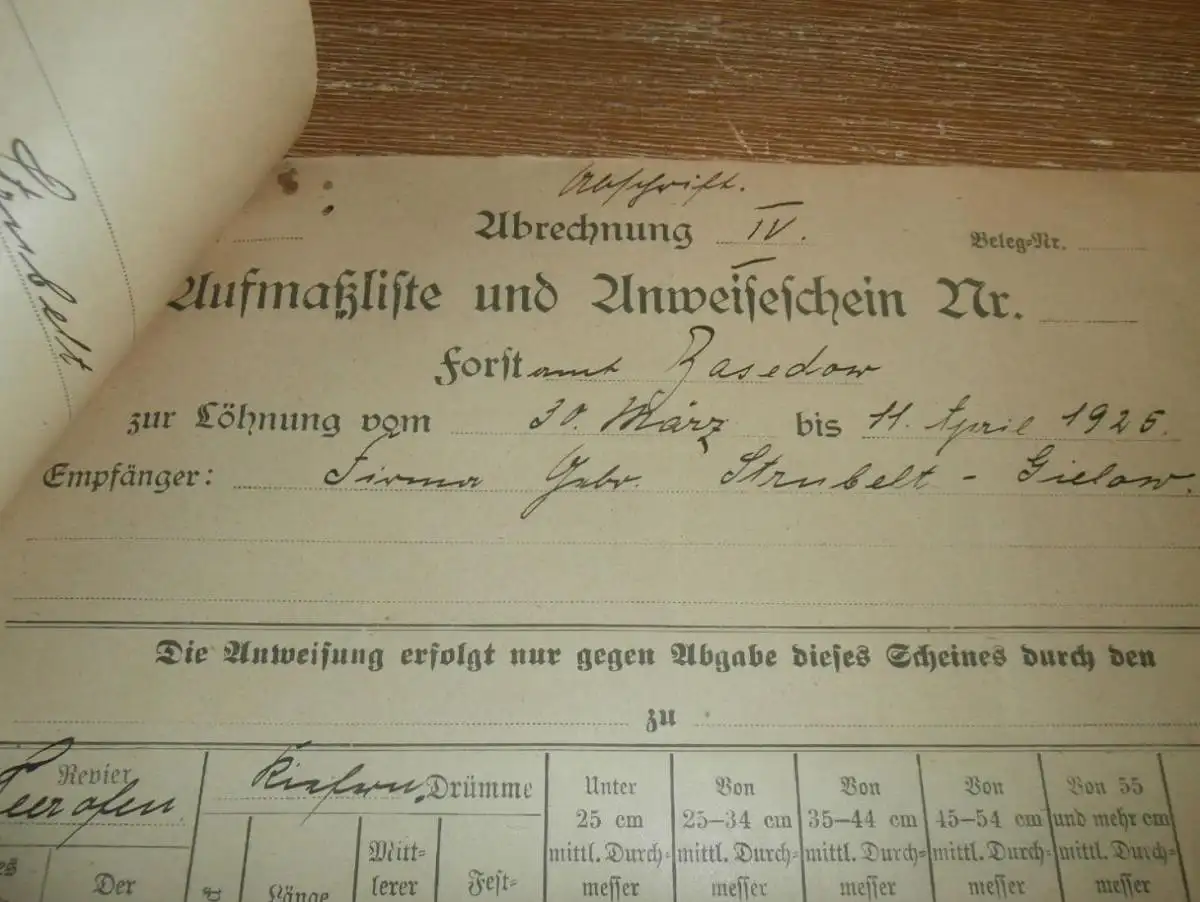 Strubelt
Abschrift.
Abrechnung IV.
Beleg-Nr.
Aufmaßliste und Anweiseschein Nr.
Forstamt Basedow
zur Löhnung vom 30. März bis 11. April 1925.
Empfänger: Firma Gebr. Strubelt - Gielow.
Die Anweisung erfolgt nur gegen Abgabe dieses Scheines durch den
zu
Revier
Teerofen
Kiefern Drümme
Unter 25 cm mittl. Durchmesser
Von 25–34 cm mittl. Durchmesser
Von 35–44 cm mittl. Durchmesser
Von 45–54 cm mittl. Durchmesser
Von 55 und mehr cm mittl. Durchmesser
Der
Länge
Mittlerer
Fest-